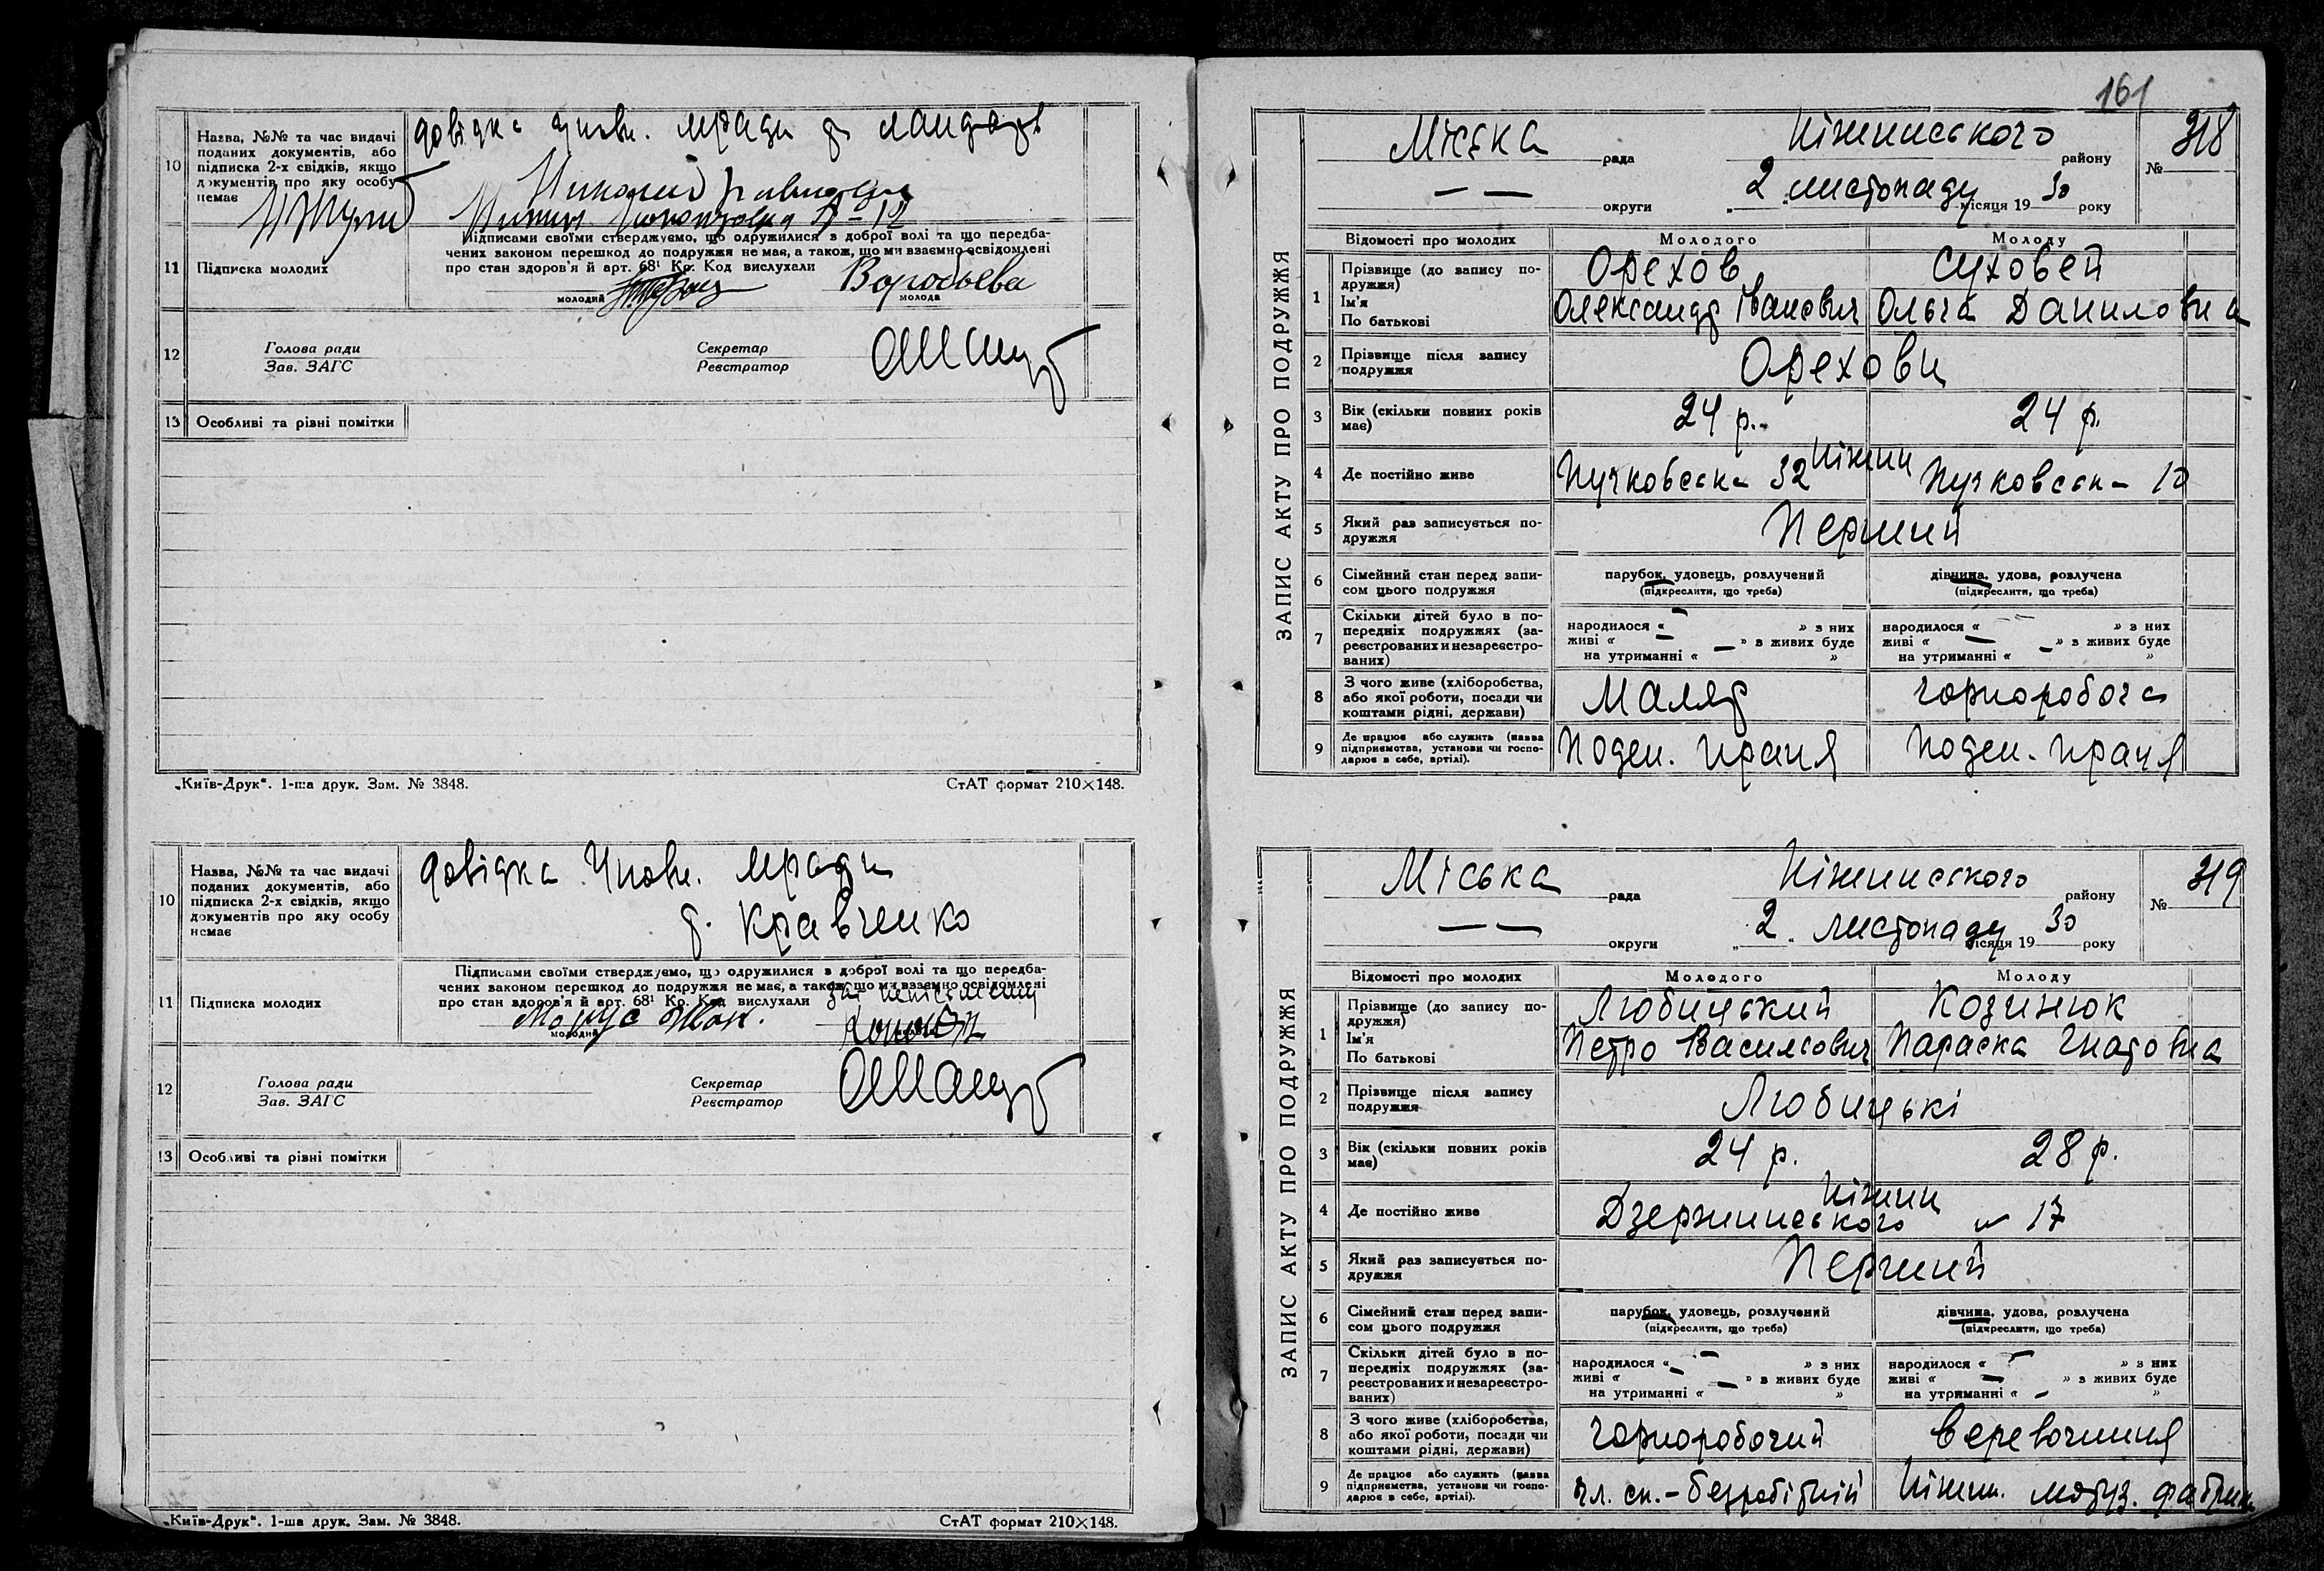 10
Назва, №№ та час видачі
поданих документів, або
підписка 2-х свідків, якщо
документів про яку особу
немає
довідка уповн. мради
11
Підписка молодих
Підписами своїми стверджуємо, що одружилися з доброї волі та що передба-
чених законом перешкод до подружжя не має, а також, що ми взаємно освідомлені
про стан здоров'я й арт. 68¹ Кр. Код вислухали
Воробьева
молодий
молода
12
Голова ради
Зав. ЗАГС
Секретар
Реєстратор
13
Особливі та різні помітки
„Київ-Друк“. 1-ша друк. Зам. № 3848.
СтАТ формат 210×148.
10
Назва, №№ та час видачі
поданих документів, або
підписка 2-х свідків, якщо
документів про яку особу
немає
довідка Уповн. мради
т. Кравченко
11
Підписка молодих
Підписами своїми стверджуємо, що одружилися з доброї волі та що передба-
чених законом перешкод до подружжя не має, а також, що ми взаємно освідомлені
про стан здоров'я й арт. 68¹ Кр. Код вислухали
молодий
12
Голова ради
Зав. ЗАГС
Секретар
Реєстратор
13
Особливі та різні помітки
„Київ-Друк“. 1-ша друк. Зам. № 3848.
СтАТ формат 210×148.
161
ЗАПИС АКТУ ПРО ПОДРУЖЖЯ
Міська рада Ніжинського району № 318
— — округи „ 2 „ листопаду місяця 1930 року
Відомості про молодих
Молодого
Молоду
1
Прізвище (до запису по-
дружжя)
Ім'я
По батькові
Орехов
Олександр Іванович
Суховей
Ольга Даниловна
2
Прізвище після запису
подружжя
Орехови
3
Вік (скільки повних років
має)
24 р.
24 р.
4
Де постійно живе
Ніжин
Пучковська 32
Пучковська 10
5
Який раз записується по-
дружжя
Перший
6
Сімейний стан перед запи-
сом цього подружжя
парубок, удовець, розлучений
(підкреслити, що треба)
дівчина, удова, розлучена
(підкреслити, що треба)
7
Скільки дітей було в по-
передніх подружжях (за-
реєстрованих и незареєстро-
ваних)
народилося « — » з них
живі « — » з живих буде
на утриманні « — »
народилося « — » з них
живі « — » з живих буде
на утриманні « — »
8
З чого живе (хліборобства,
або якої роботи, посади чи
коштами рідні, держави)
Маляр
чорноробоча
9
Де працює або служить (назва
підприємства, установи чи госпо-
дарює в себе, артілі).
Поден. праця
Поден. праця
ЗАПИС АКТУ ПРО ПОДРУЖЖЯ
Міська рада Ніжинського району № 319
— — округи „ 2 „ листопаду місяця 1930 року
Відомості про молодих
Молодого
Молоду
1
Прізвище (до запису по-
дружжя)
Ім'я
По батькові
Любицький
Петро Васильович
Козинюк
Параска Гнатовна
2
Прізвище після запису
подружжя
Любицькі
3
Вік (скільки повних років
має)
24 р.
28 р.
4
Де постійно живе
Ніжин
Дзержинського № 17
5
Який раз записується по-
дружжя
Перший
6
Сімейний стан перед запи-
сом цього подружжя
парубок, удовець, розлучений
(підкреслити, що треба)
дівчина, удова, розлучена
(підкреслити, що треба)
7
Скільки дітей було в по-
передніх подружжях (за-
реєстрованих и незареєстро-
ваних)
народилося « — » з них
живі « — » з живих буде
на утриманні « — »
народилося « — » з них
живі « — » з живих буде
на утриманні « — »
8
З чого живе (хліборобства,
або якої роботи, посади чи
коштами рідні, держави)
чорноробочий
веревочниця
9
Де працює або служить (назва
підприємства, установи чи госпо-
дарює в себе, артілі).
чл. сп. - безробітній
Ніжин. мотуз. фабрика